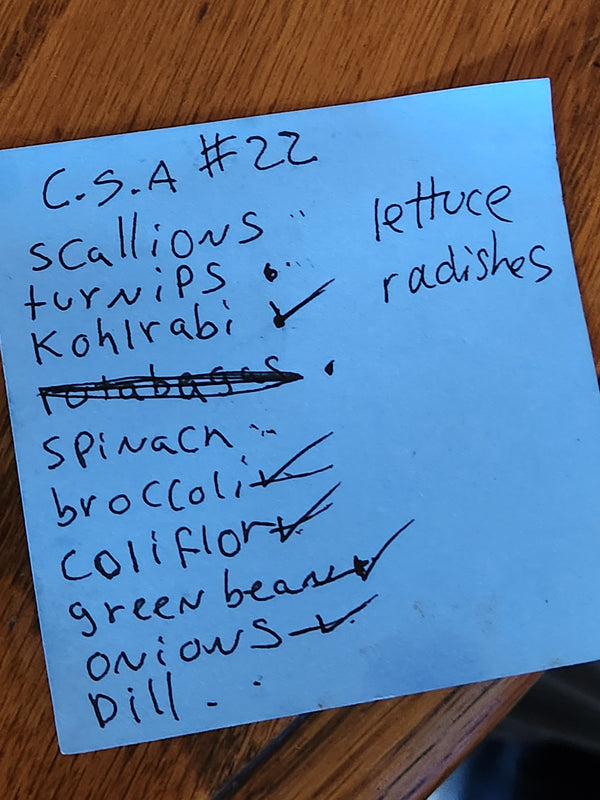 C.S.A #22
scallions
turnips
Kohlrabi
rotabagas
spinach
broccoli
coliflor
green beans
onions
Dill
lettuce
radishes